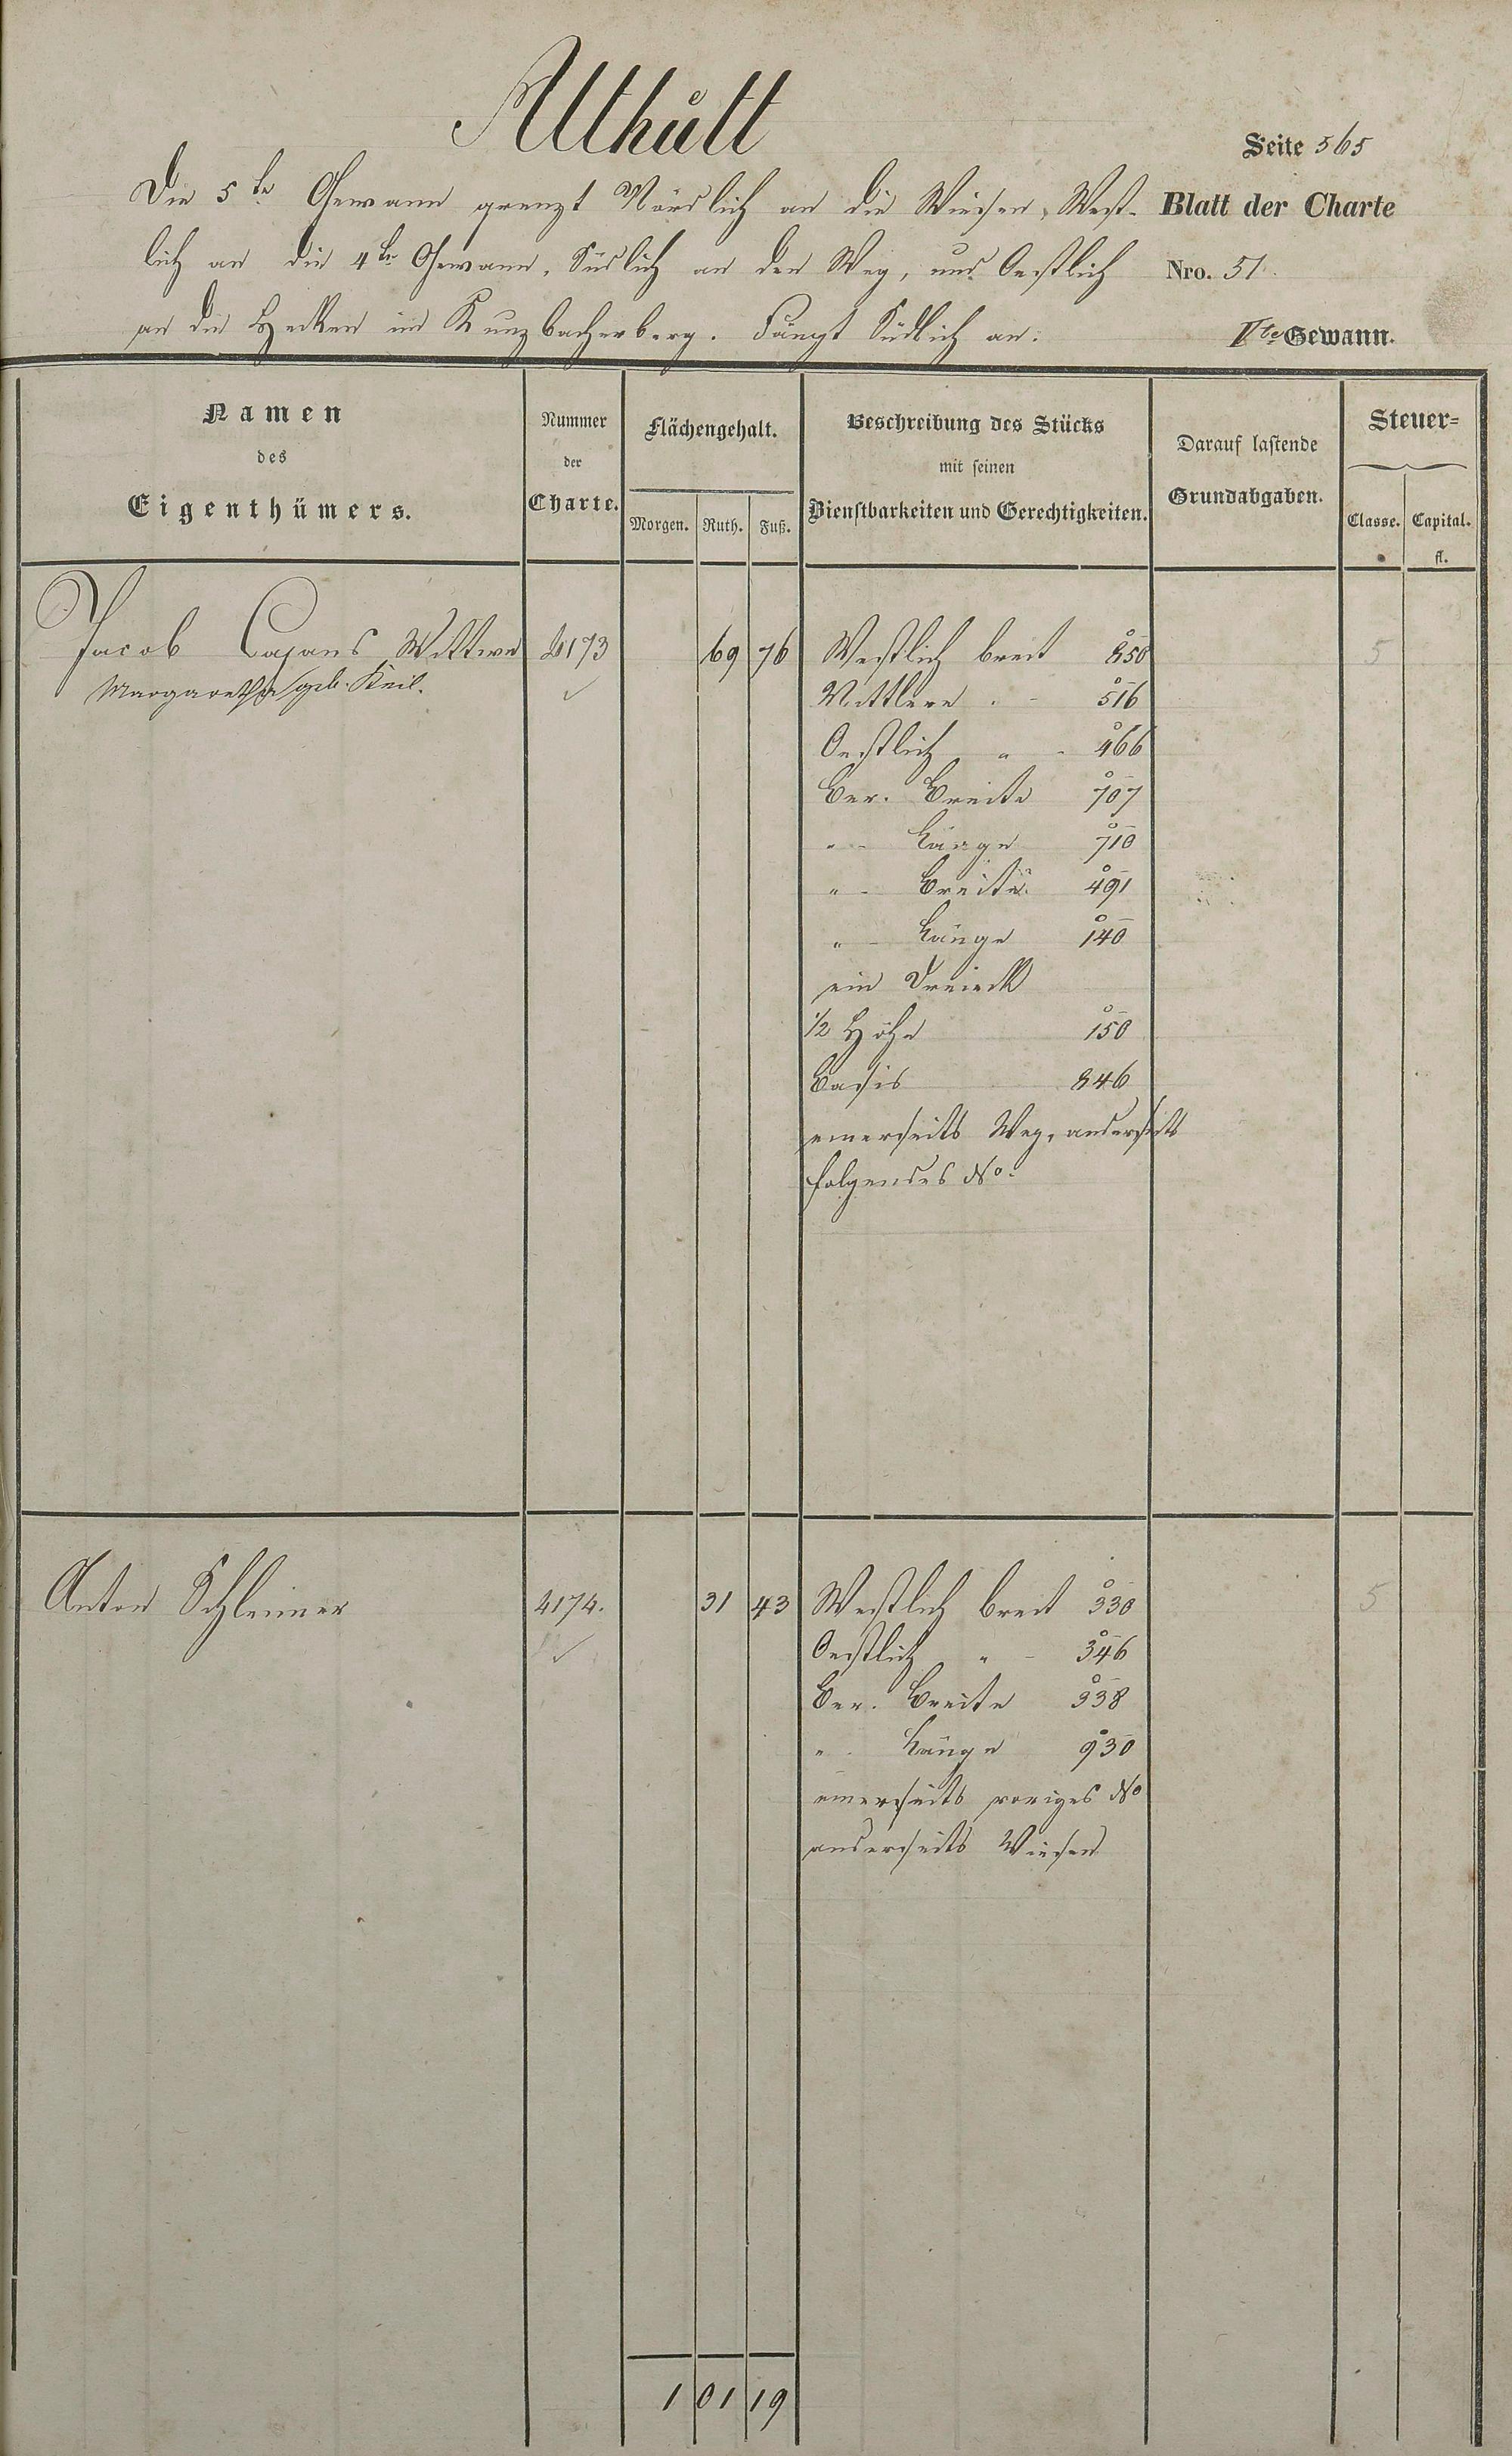 Althütt
Seite 565
Die 5te Gewann grenzt Nördlich an die Wiesen, West-
Blatt der Charte
lich an die 4te Gewann, Südlich an den Weg, und Oestlich
Nro. 51.
an die Hecken im Kunzbacherberg. Fängt Südlich an.
Vte Gewann.
Namen
des
Eigenthümers.
Nummer
der
Charte.
Flächengehalt.
Morgen. Ruth. Fuß.
Beschreibung des Stücks
mit seinen
Dienstbarkeiten und Gerechtigkeiten.
Darauf lastende
Grundabgaben.
Steuer-
Classe. Capital.
fl.
Jacob Cajans Wittwe 4173 69 76 Westlich breit 850 5
Margaretha geb. Keil. ✓
Mittlere " - 516
Oestlich " - 466
Ber. Breite 707
" - Länge 710
" - Breite 491
" - Länge 140
ein Dreieck
1/2 Höhe 150
Basis 846
einerseits Weg, anderseits
folgendes No.
Anton Schleimer 4174. 31 43 Westlich breit 330 5
✓
Oestlich " - 346
Ber. Breite 338
" - Länge 930
einerseits voriges No
anderseits Wiesen
1 01 19